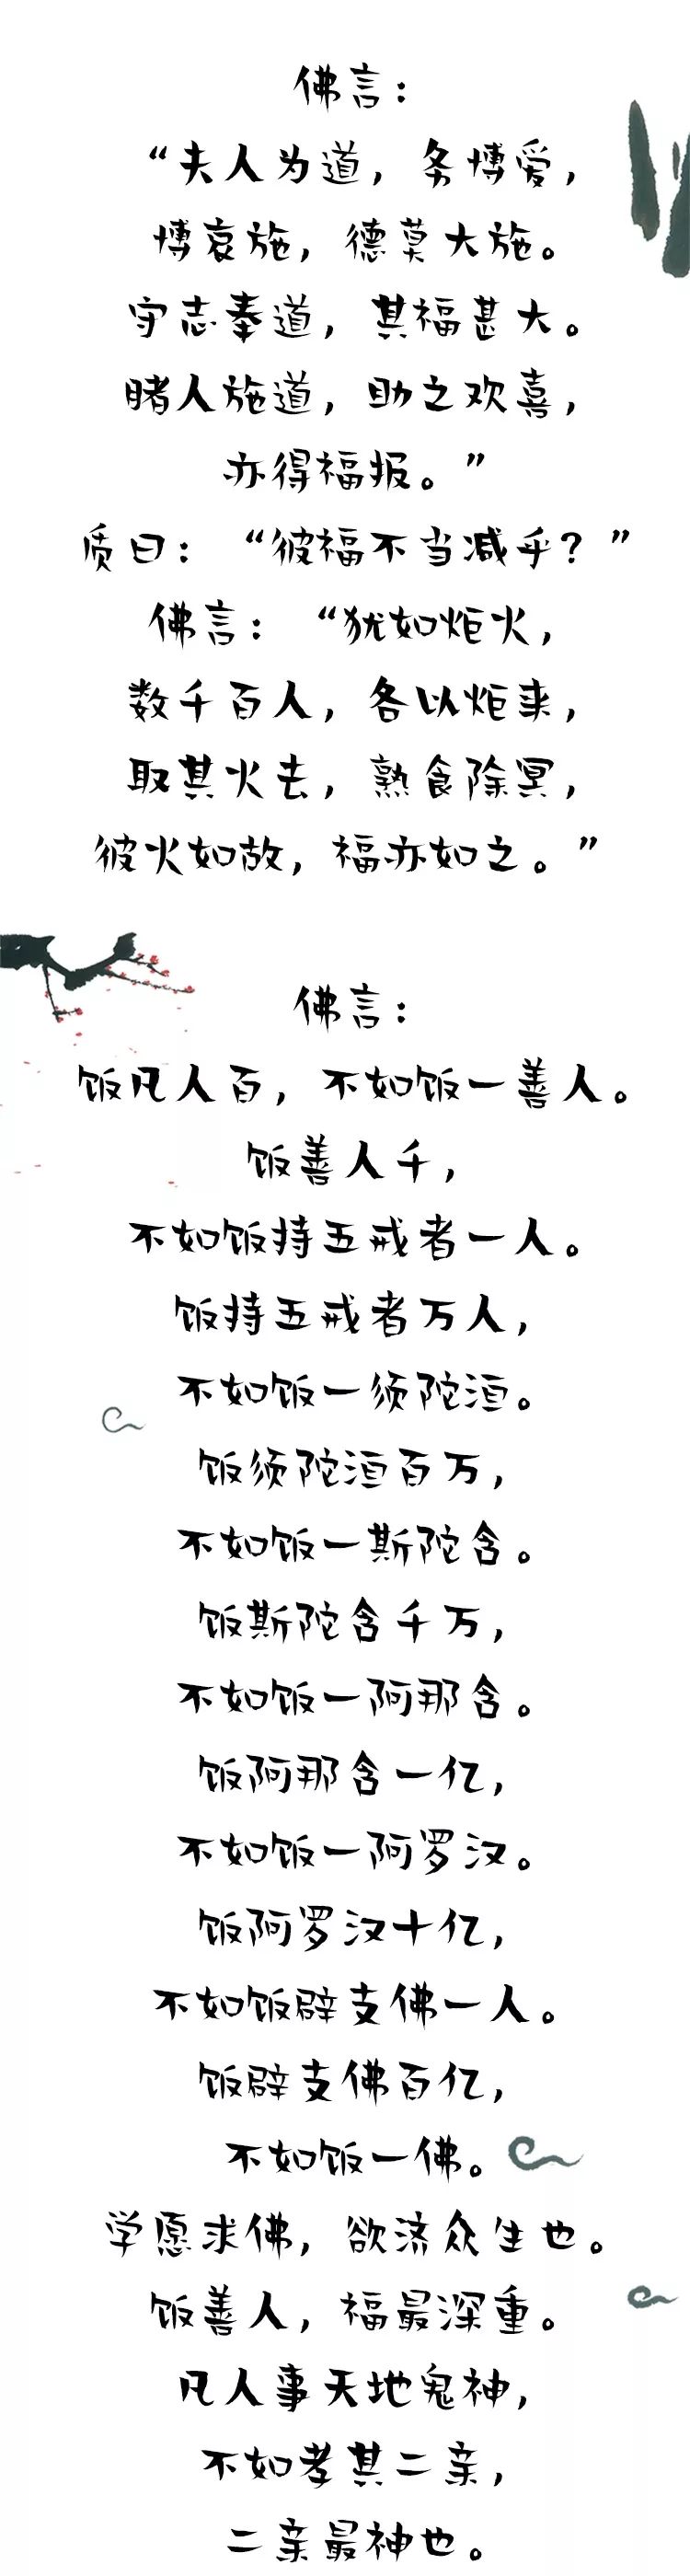 佛言：
“夫人为道，务博爱，
博哀施，德莫大施。
守志奉道，其福甚大。
睹人施道，助之欢喜，
亦得福报。”
质曰：“彼福不当减乎？”
佛言：“犹如炬火，
数千百人，各以炬来，
取其火去，熟食除冥，
彼火如故，福亦如之。”
佛言：
饭凡人百，不如饭一善人。
饭善人千，
不如饭持五戒者一人。
饭持五戒者万人，
不如饭一须陀洹。
饭须陀洹百万，
不如饭一斯陀含。
饭斯陀含千万，
不如饭一阿那含。
饭阿那含一亿，
不如饭一阿罗汉。
饭阿罗汉十亿，
不如饭辟支佛一人。
饭辟支佛百亿，
不如饭一佛。
学愿求佛，欲济众生也。
饭善人，福最深重。
凡人事天地鬼神，
不如孝其二亲，
二亲最神也。